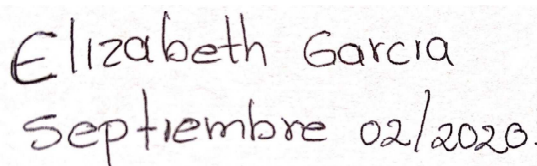 Elizabeth Garcia
Septiembre 02/2020.